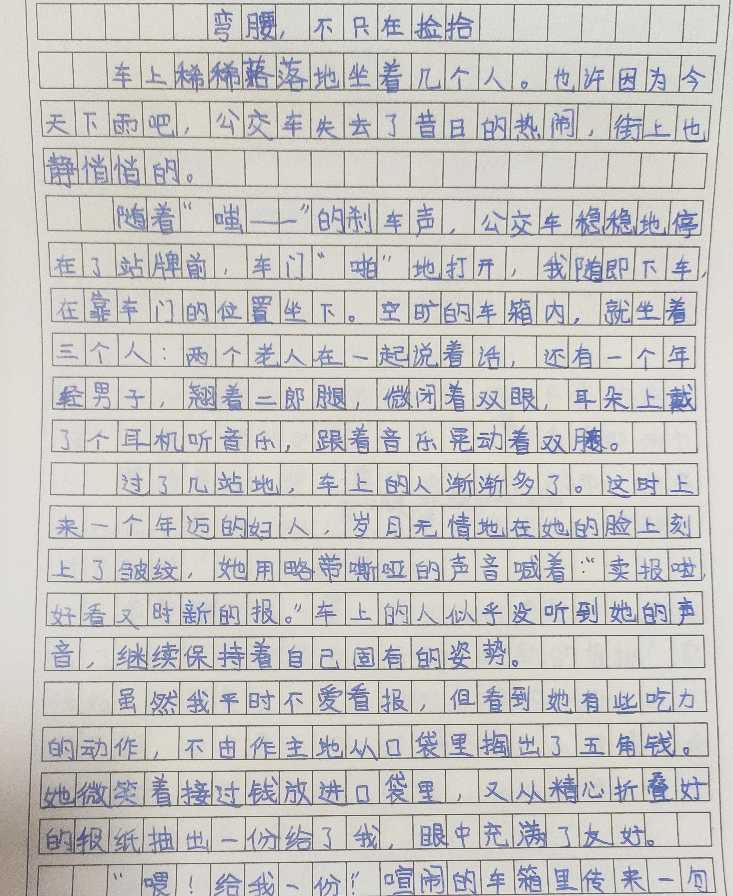 弯腰，不只在捡拾
车上稀稀落落地坐着几个人。也许因为今
天下雨吧，公交车失去了昔日的热闹，街上也
静悄悄的。
随着“嗤——”的刹车声，公交车稳稳地停
在了站牌前，车门“啪”地打开，我随即下车，
在靠车门的位置坐下。空旷的车箱内，就坐着
三个人：两个老人在一起说着话，还有一个年
轻男子，翘着二郎腿，微闭着双眼，耳朵上戴
了个耳机听音乐，跟着音乐晃动着双腿。
过了几站地，车上的人渐渐多了。这时上
来一个年迈的妇人，岁月无情地在她的脸上刻
上了皱纹，她用略带嘶哑的声音喊着：“卖报啦，
好看又时新的报。”车上的人似乎没听到她的声
音，继续保持着自己固有的姿势。
虽然我平时不爱看报，但看到她有些吃力
的动作，不由作主地从口袋里掏出了五角钱。
她微笑着接过钱放进口袋里，又从精心折叠好
的报纸抽出一份给了我，眼中充满了友好。
“喂！给我一份！”喧闹的车箱里传来一句